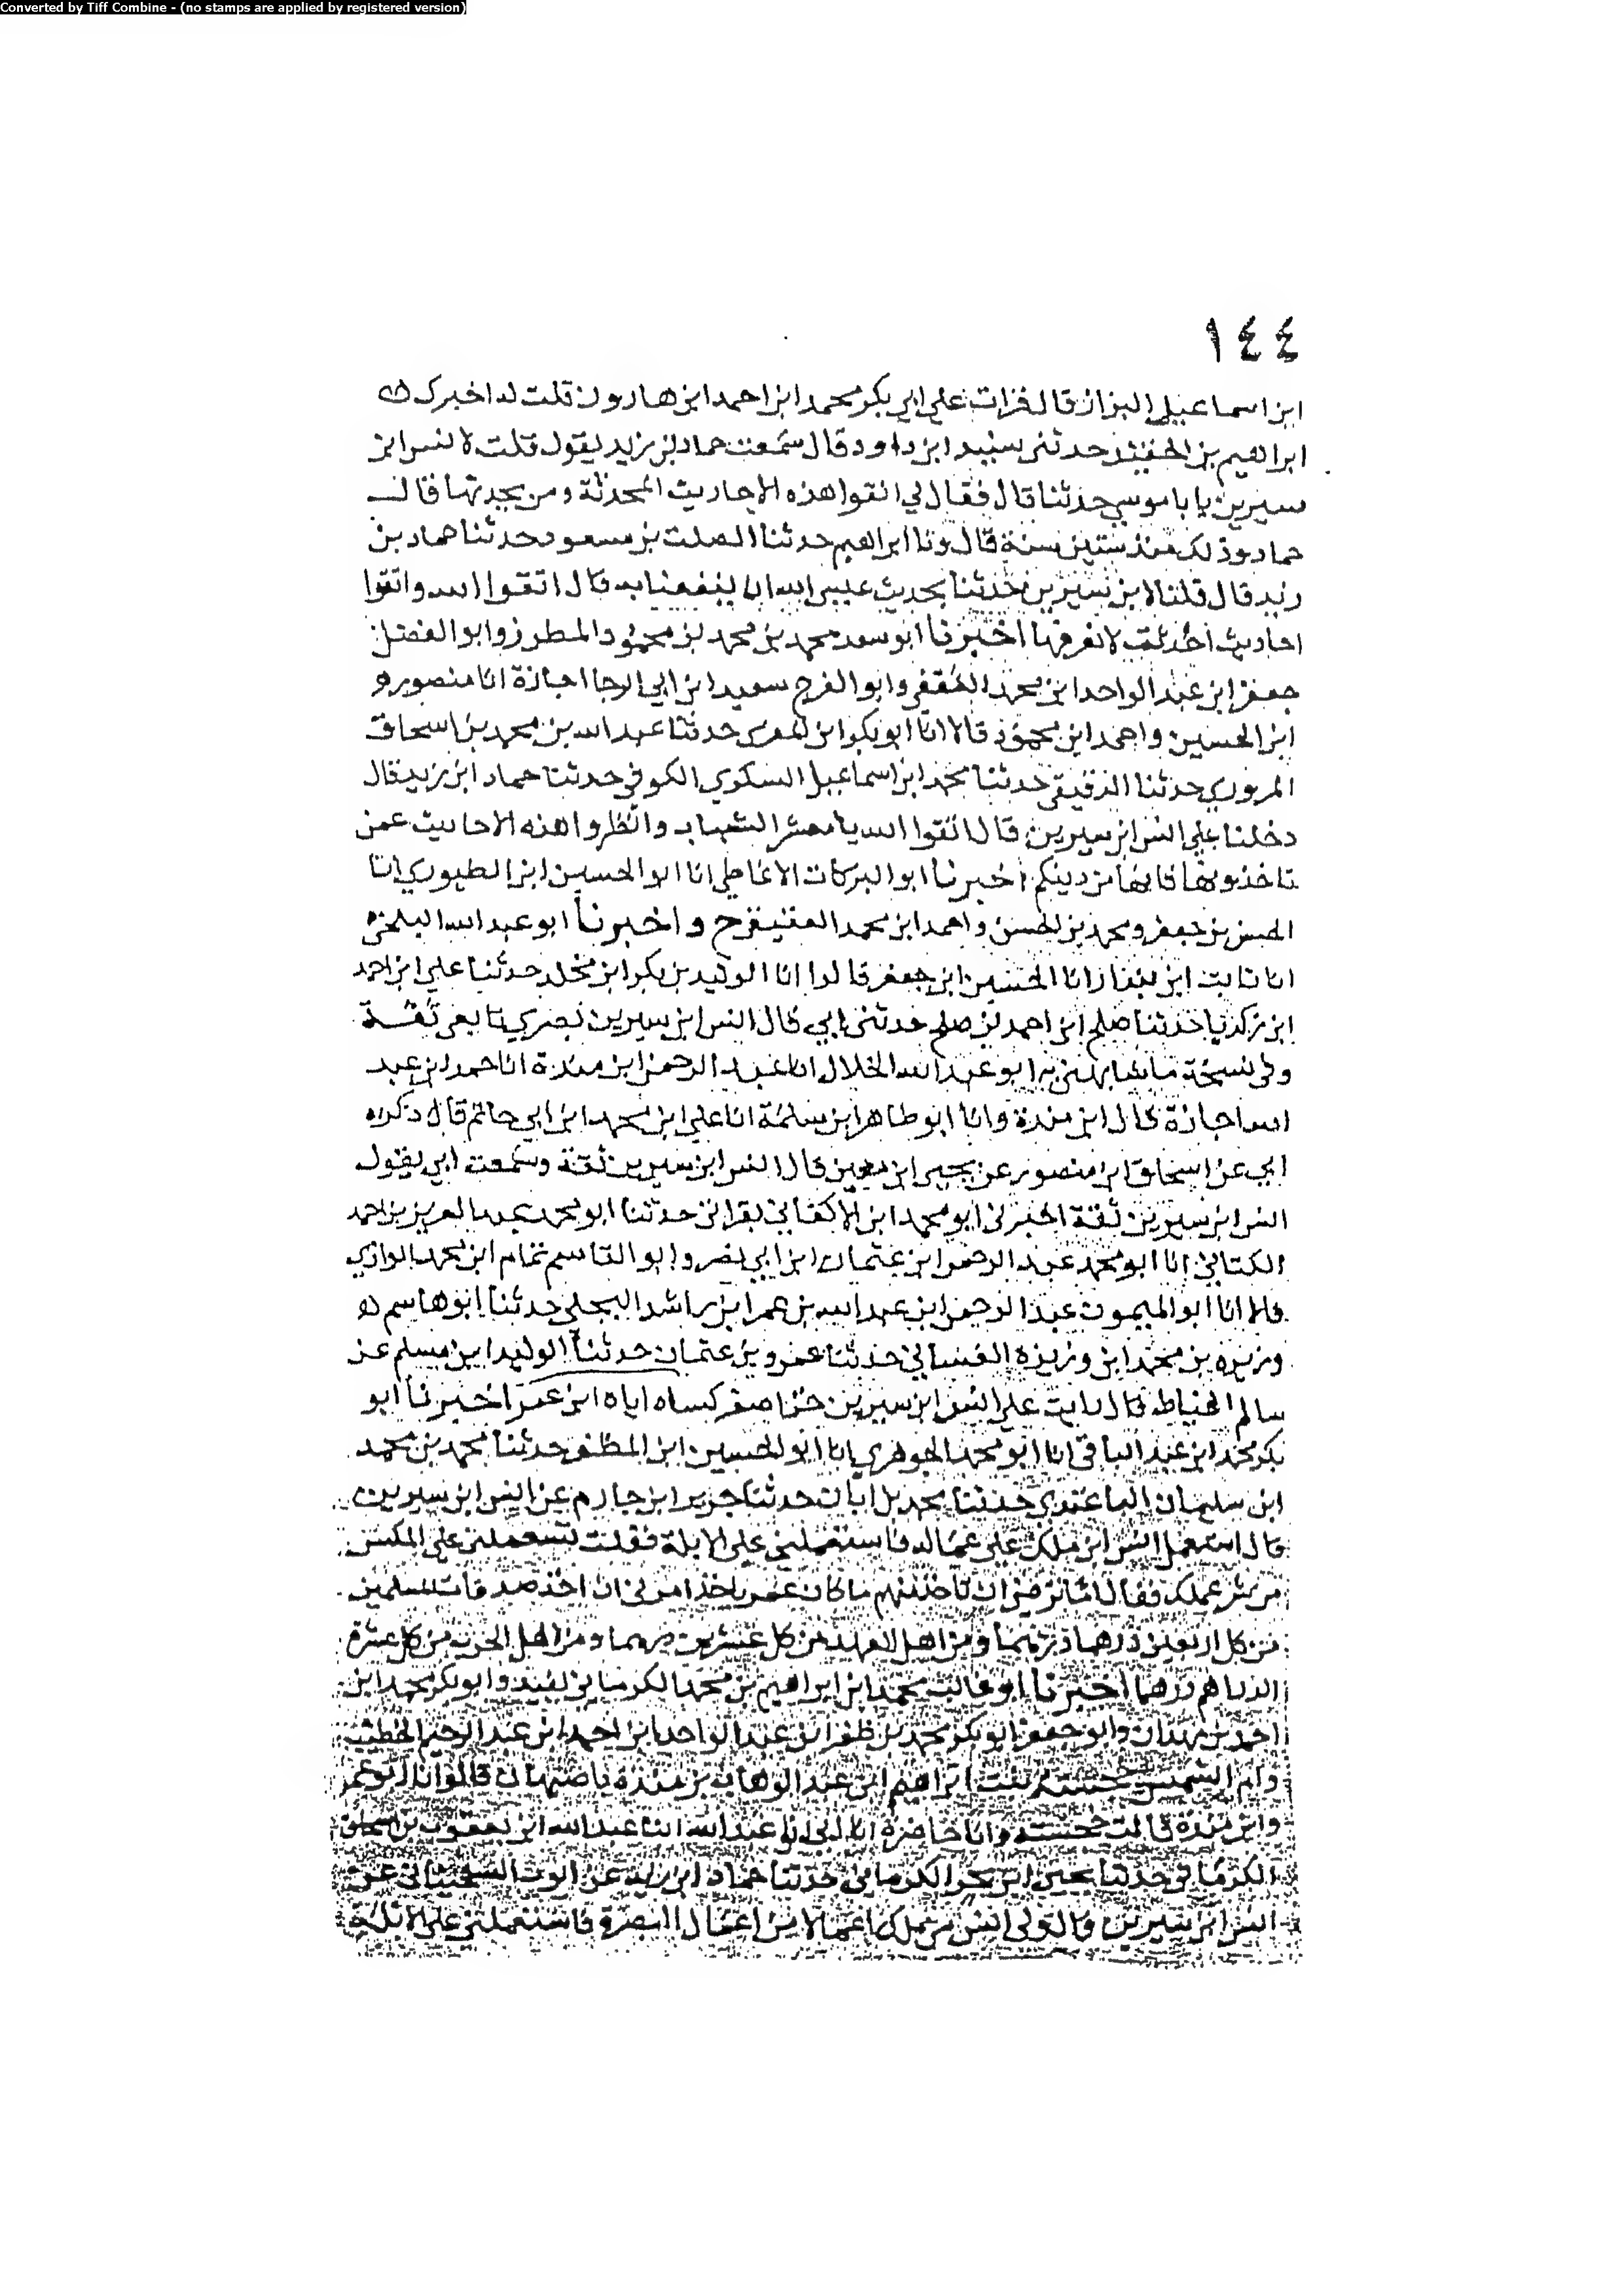 Converted by Tiff Combine - (no stamps are applied by registered version)
١٤٤
ابن اسماعيل البزاز قال قرات على ابي بكر محمد ابن احمد ابن هارون قلت له اخبرك
ابراهيم بن الجنيد حدثني سنيد ابن داود قال سمعت حماد بن زيد يقول قلت لانس ابن
سيرين يا با موسى حدثنا قال فقال لي اتقوا هذه الاحاديث المحدثة ومن يحدثها قال
حماد وذلك منذ ستين سنة قال ونا ابراهيم حدثنا الصلت بن مسعود حدثنا حماد بن
زيد قال قلنا لابن سيرين حدثنا بحديث عسى الله ان ينفعنا به قال اتقوا الله واتقوا
احاديث احدثت لا نعرفها اخبرنا ابو سعد محمد بن محمد بن محمود المطرز وابو الفضل
جعفر ابن عبد الواحد ابن محمد الثقفي وابو الفرج سعيد ابن ابي الرجا اجازة انا منصور
ابن الحسين واحمد ابن محمود قالا انا ابو بكر ابن المقرى حدثنا عبد الله بن محمد بن اسحاق
المروزي حدثنا الدقيقي حدثنا محمد ابن اسماعيل السكوي الكوفي حدثنا حماد ابن زيد قال
دخلنا على انس ابن سيرين قال اتقوا الله يا معشر الشباب وانظروا هذه الاحاديث عمن
تاخذونها فانها من دينكم اخبرنا ابو البركات الانماطي انا ابو الحسين ابن الطيوري انا
الحسن بن جعفر ومحمد بن الحسن واحمد ابن محمد العتيقي ح واخبرنا ابو عبد الله البلخي
انا ثابت ابن بندار انا الحسين ابن جعفر قالوا انا الوليد بن بكر ابن مخلد حدثنا علي ابن احمد
ابن زكريا حدثنا صلح ابن احمد بن صلح حدثني ابي قال انس ابن سيرين بصري تابعي ثقة
وفي نسخة ما شافهني به ابو عبد الله الخلال انا عبد الرحمن ابن مندة انا حمد ابن عبد
الله اجازة قال ابن مندة وانا ابو طاهر ابن سلمة انا علي ابن محمد ابن ابي حاتم قال ذكره
ابي عن اسحاق ابن منصور عن يحيى ابن معين قال انس ابن سيرين ثقة وسمعت ابي يقول
انس ابن سيرين ثقة اخبرني ابو محمد ابن الاكفاني بقراتي حدثنا ابو محمد عبد العزيز بن احمد
الكتاني انا ابو محمد عبد الرحمن ابن عثمان ابن ابي نصر وابو القاسم تمام ابن محمد الرازي
قالا انا ابو الميمون عبد الرحمن ابن عبد الله بن عمر ابن راشد البجلي حدثنا ابو هاسم
وزيره بن محمد ابن وزيره الغساني حدثنا عمرو بن عثمان حدثنا الوليد ابن مسلم عن
سالم الخياط قال رايت على انس ابن سيرين كساه اياه ابن عمر اخبرنا ابو
بكر محمد ابن عبد الباقي انا ابو محمد الجوهري انا ابو الحسين ابن المظفر حدثنا محمد بن محمد
ابن سليمان الباغندي حدثنا محمد بن ابان حدثنا جرير ابن حازم عن انس ابن سيرين
قال استعمل انس ابن ملك على عماله فاستعملني على الابلة فقلت تستعملني على المكس
من شر عملك فقال اما ترضى ان تاخذ منهم ما كان عمر ياخذ امرني ان اخذ صدقات المسلمين
من كل اربعين درهما درهما ومن اهل العهد من كل عشرين درهما ومن اهل الحرب من كل عشرة
الدراهم درهما اخبرنا ابو غالب محمد ابن ابراهيم بن محمد الكرماني وابو بكر محمد ابن
احمد بن وابو جعفر ابو بكر محمد بن ظفر ابن عبد الواحد ابن احمد ابن عبد الرحيم الخطيب
وام بنت ابراهيم ابن عبد الوهاب بن مندة باصبهان قالوا انا ابو عمر
وابن مندة قالت وانا حاضرة انا ابي ابو عبد الله انا عبد الله ابن يعقوب بن اسحاق
الكرماني حدثنا يحيى ابن بحر الكرماني حدثنا حماد ابن زيد عن ايوب السختياني عن
انس ابن سيرين قال تولى انس من اعمال البصرة فاستعملني على الابلة